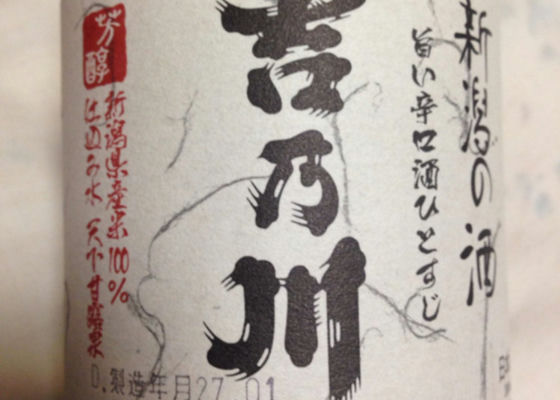 新潟の酒
旨い辛口酒ひとすじ
吉乃川
芳醇
新潟県産米100%
仕込み水 天下甘露泉
D.製造年月27.01